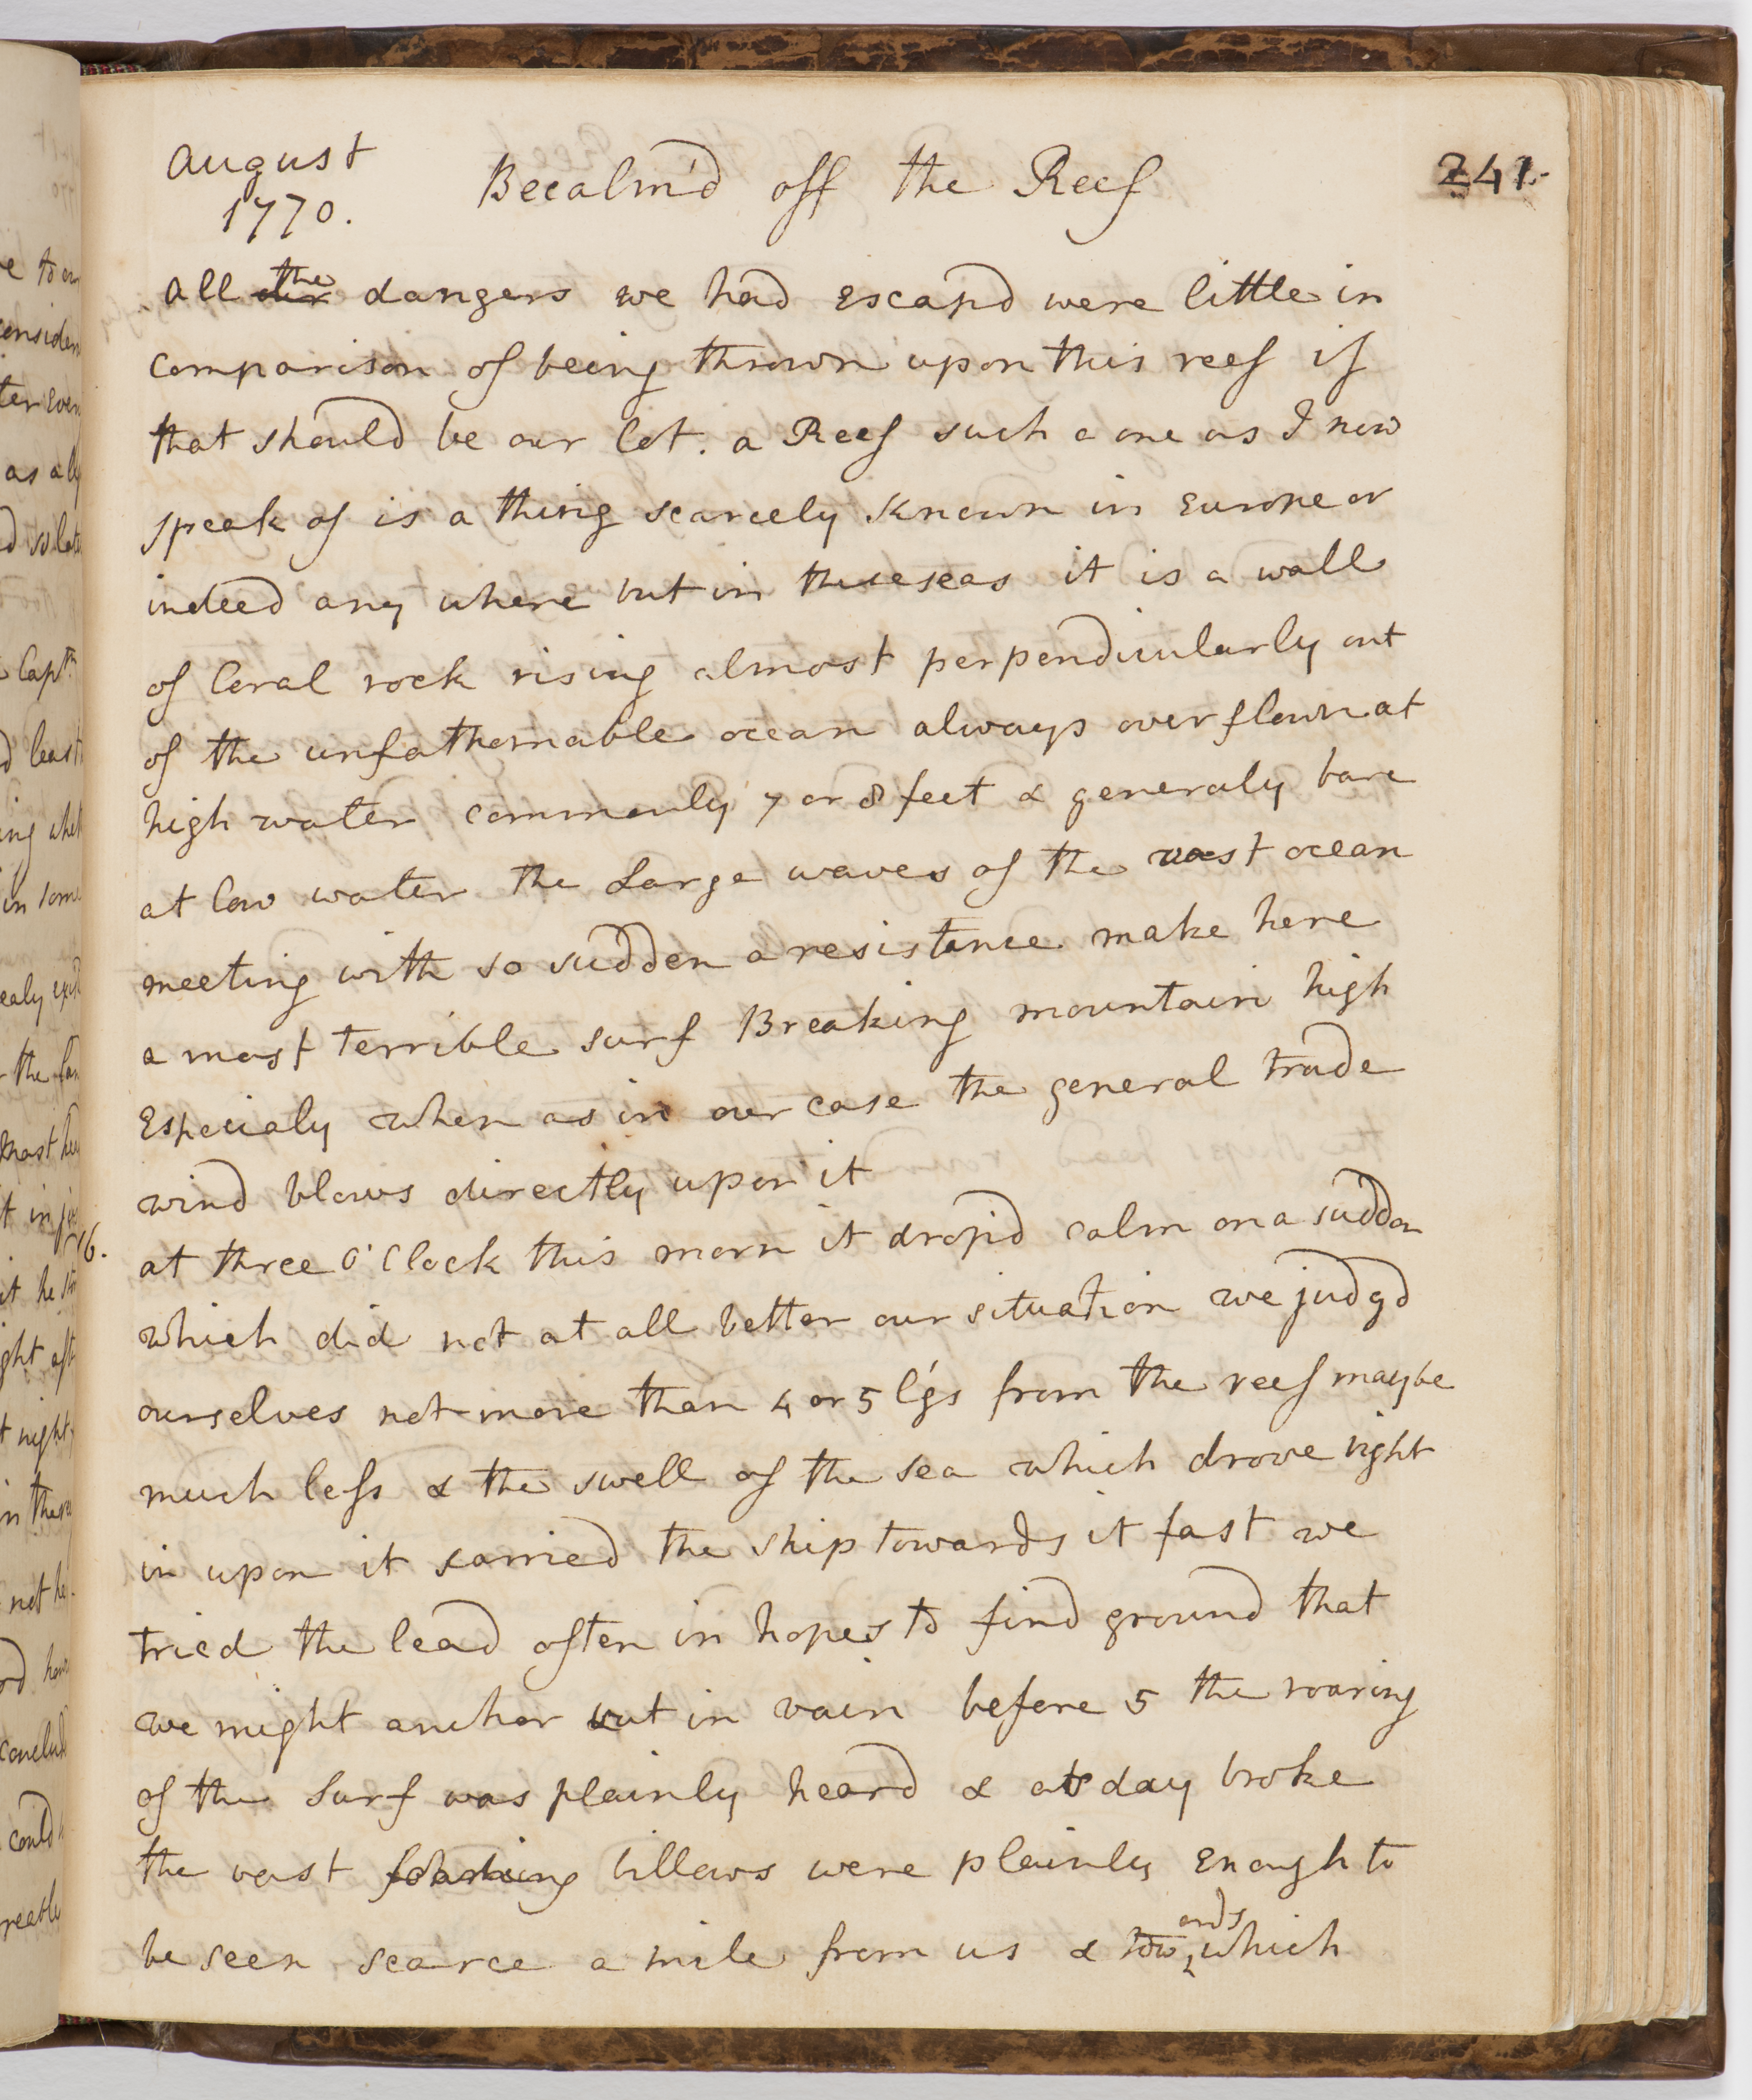 August
1770.
Becalm'd off the Reef
241.
all the our dangers we had escapd were little in
comparison of being thrown upon this reef if
that should be our lot. a Reef such a one as I now
speak of is a thing scarcely known in Europe or
indeed any where but in these seas it is a wall
of Coral rock rising almost perpendicularly out
of the unfathomable ocean always overflown at
high water commonly 7 or 8 feet & generaly bare
at low water the Large waves of the vast ocean
meeting with so sudden a resistance make here
a most terrible surf Breaking mountain high
Especialy when as in our case the general trade
wind blows directly upon it
16.
at three O'Clock this morn it dropd calm on a sudden
which did not at all better our situation we judgd
ourselves not more than 4 or 5 l'gs from the reef maybe
much less & the swell of the sea which drove right
in upon it carried the ship towards it fast we
tried the lead often in hopes to find ground that
we might anchor but in vain before 5 the roaring
of the Surf was plainly heard & as day broke
the vast foaming billows were plainly Enough to
be seen scarce a mile from us & towards which